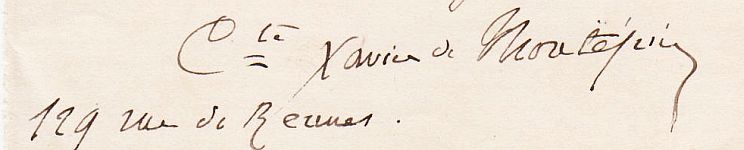 Cte Xavier de Montépin
129 rue de Rennes.